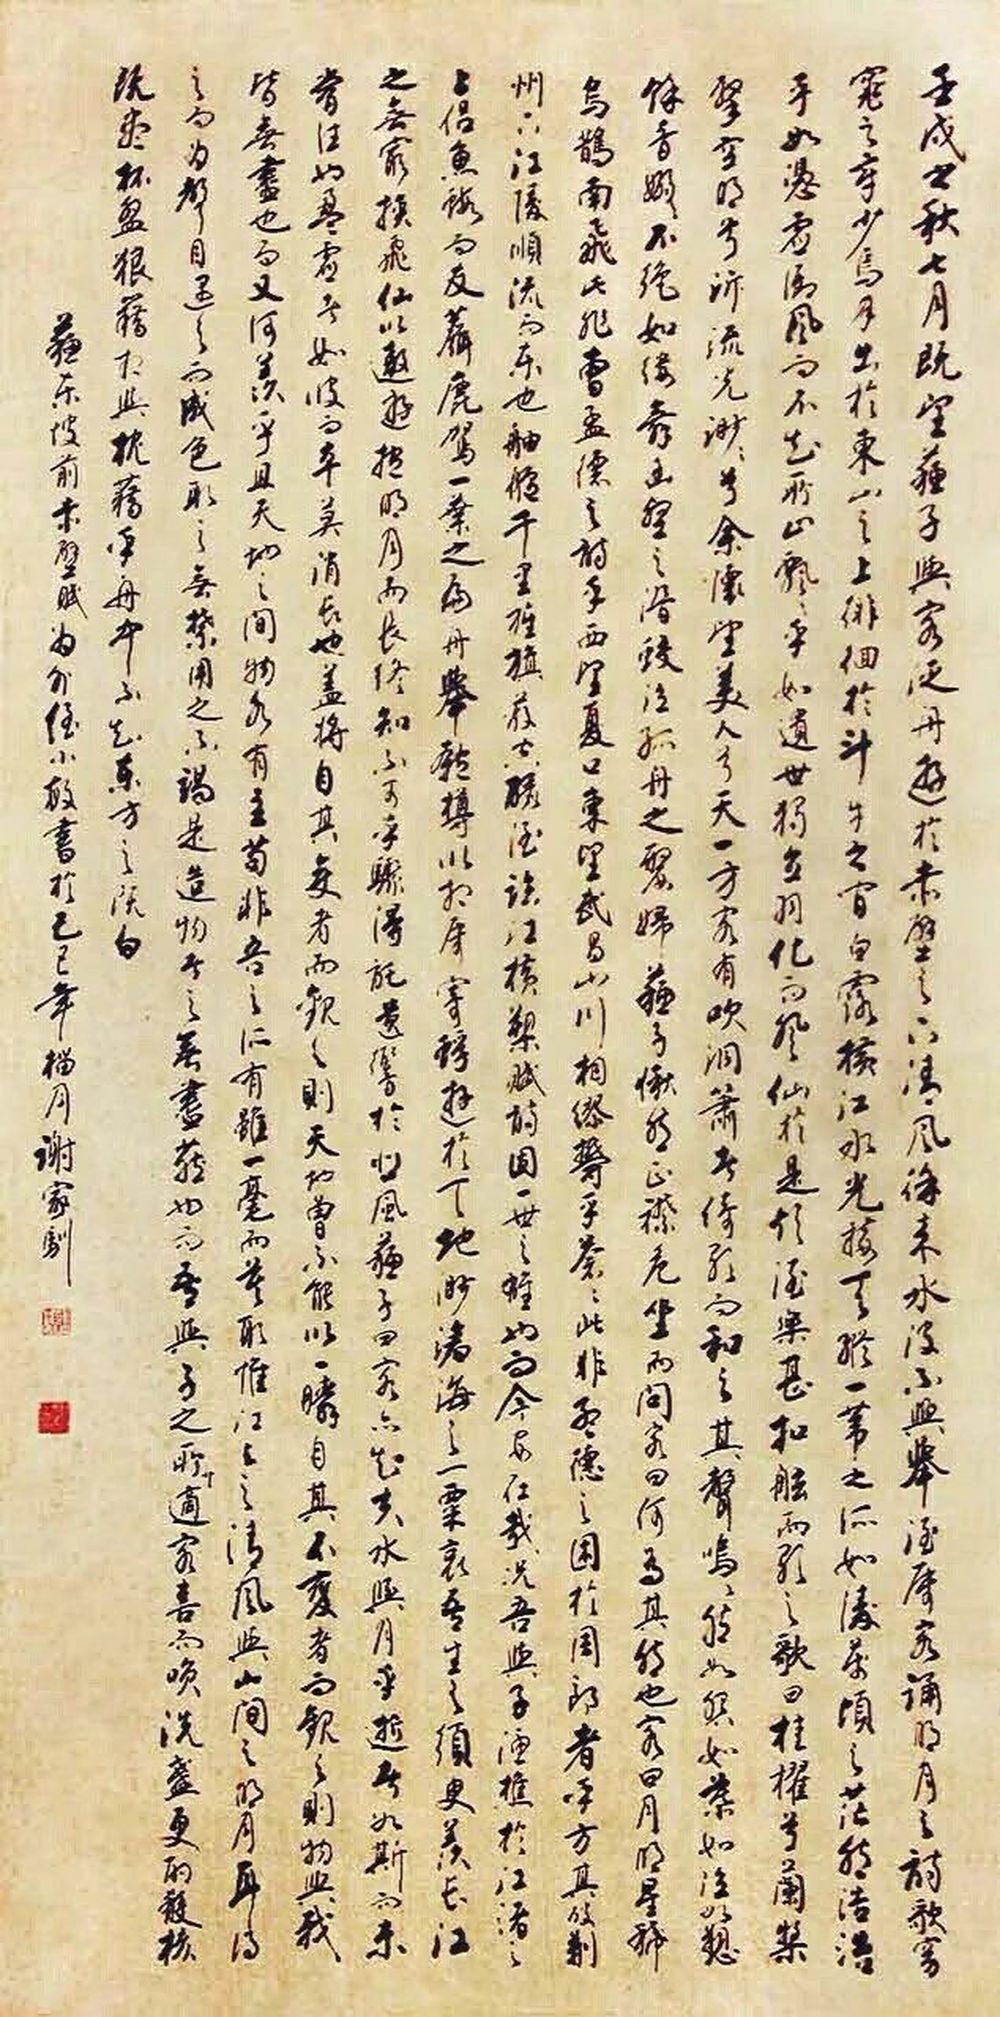 壬戌之秋七月既望蘇子與客泛舟遊於赤壁之下清風徐來水波不興舉酒屬客誦明月之詩歌窈
窕之章少焉月出於東山之上徘徊於斗牛之間白露橫江水光接天縱一葦之所如凌萬頃之茫然浩浩
乎如憑虛御風而不知所止飄乎如遺世獨立羽化而登仙於是飲酒樂甚扣舷而歌之歌曰桂櫂兮蘭槳
擊空明兮泝流光渺渺兮余懷望美人兮天一方客有吹洞簫者倚歌而和之其聲嗚嗚然如怨如慕如泣如愬
餘音嫋嫋不絕如縷舞幽壑之潛蛟泣孤舟之嫠婦蘇子愀然正襟危坐而問客曰何為其然也客曰月明星稀
烏鵲南飛此非曹孟德之詩乎西望夏口東望武昌山川相繆鬱乎蒼蒼此非孟德之困於周郎者乎方其破荊
州下江陵順流而東也舳艫千里旌旗蔽空釃酒臨江橫槊賦詩固一世之雄也而今安在哉況吾與子漁樵於江渚之
上侶魚蝦而友麋鹿駕一葉之扁舟舉匏樽以相屬寄蜉蝣於天地渺滄海之一粟哀吾生之須臾羨長江
之無窮挾飛仙以遨遊抱明月而長終知不可乎驟得託遺響於悲風蘇子曰客亦知夫水與月乎逝者如斯而未
嘗往也盈虛者如彼而卒莫消長也蓋將自其變者而觀之則天地曾不能以一瞬自其不變者而觀之則物與我
皆無盡也而又何羨乎且天地之間物各有主苟非吾之所有雖一毫而莫取惟江上之清風與山間之明月耳得
之而為聲目遇之而成色取之無禁用之不竭是造物者之無盡藏也而吾與子之所共適客喜而笑洗盞更酌殽核
既盡杯盤狼藉相與枕藉乎舟中不知東方之既白
蘇東坡前赤壁賦為外侄小書於己巳年腊月謝家馴